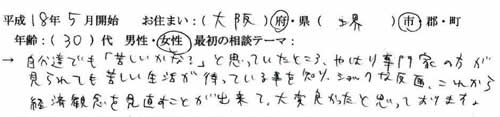 平成18年5月開始 お住まい:(大阪)府・県(堺)市・郡・町
年齢:(30)代 男性・女性 最初の相談テーマ:
→ 自分達でも「苦しいかな?」と思っていたところ、やはり専門家の方が
見られても苦しい生活が待っている事を知り、ショックな反面、これから
経済観念を見直すことが出来て、大変良かったと思っております。